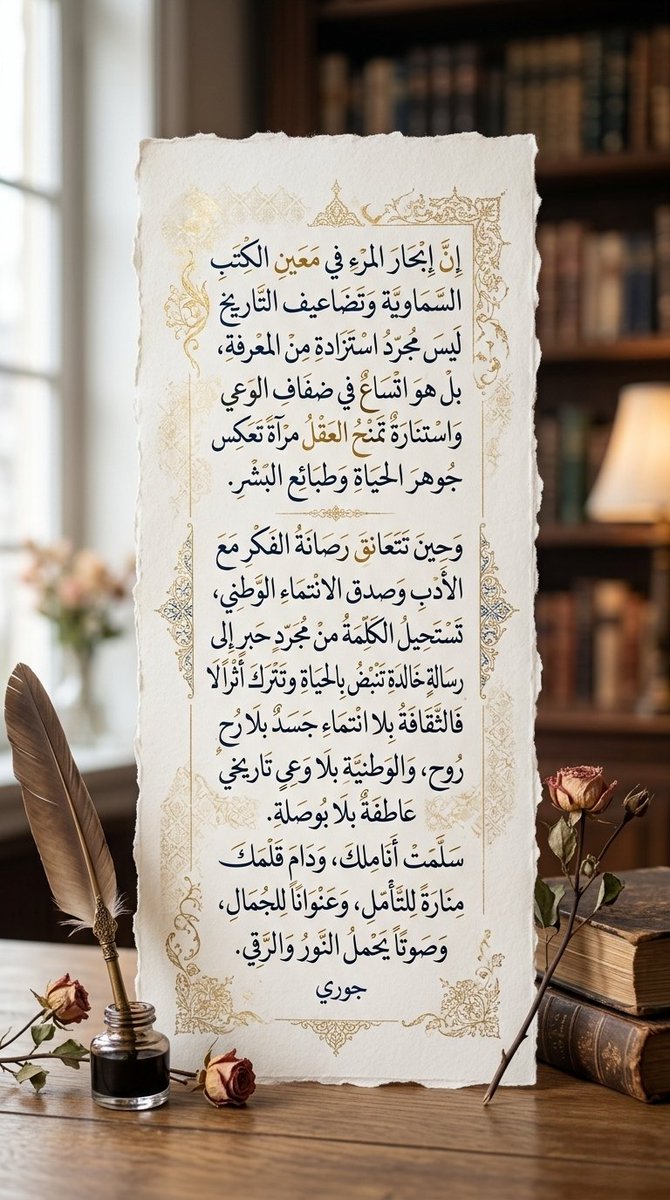 إِنَّ إِبْحَارَ المَرْءِ في مَعَينِ الكُتَبِ
السَّمَاوِيَّة وَتَضَاعيف التَّاريخ
لَيسَ مُجرّدُ اسْتَزَادةِ مِنْ المَعْرفةِ،
بلْ هوَ اتْسَاعٌ في ضفَافِ الوَعي
وَاسْتنَارَةٌ تَمْنْحُ العَقْلُ مرْآةً تَعَكِس
جُوهرَ الحيَاةِ وَطبَائِع البَشْرِ.
وَحينَ تَتَعَانقَ رَصَانَةُ الفَكْرِ مَعَ
الأَدْبِ وَصدق الانْتمَاءِ الوَّطنِي،
تَسْتَحِيلُ الكَلّمَةُ منْ مُجرّدٍ حَبرٍ إلى
رسَالةٍ خَالدَةِ تَنْبْضُ بِالحيَاةِ وتَتْركَ أَثْرًالَا
فَالثَّقَافَةُ بِلا انْتمَاءِ جَسَدٌ بلَا رُح
رُوح، وَالوَطنيَّة بلَا وَعيٍ تَاريخيٍ
عَاطفَةٌ بلَا بُوصَلةِ.
سَلَّمَتْ أَنَاملكَ، وَدَامَ قَلمَكَ
منَارَةً لِلتَّأَمّلِ، وَعَنْوَاناً لِلجُمَالِ،
وَصَوتاً يَحْملُ النَّورُ وَالرَّقِي.
جوري